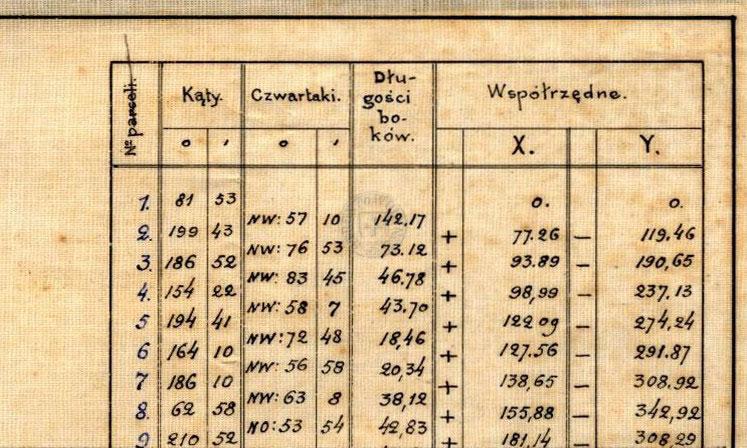 Nº parceli.
Kąty.
Czwartaki.
Dłu-
gości
bo-
ków.
Współrzędne.
o ' o ' X. Y.
1. 81 53 0. 0.
NW: 57 10 142,17
2. 199 43 + 77.26 — 119.46
NW: 76 53 73.12
3. 186 52 + 93.89 — 190,65
NW: 83 45 46.78
4. 154 22 + 98,99 — 237.13
NW: 58 7 43.70
5 194 41 + 122 09 — 274,24
NW: 72 48 18,46
6 164 10 + 127.56 — 291.87
NW: 56 58 20,34
7 186 10 + 138,65 — 308.92
NW: 63 8 38,12
8. 62 58 + 155,88 — 342,92
NO: 53 54 42,83
9 210 52 + 181,14 — 308,29